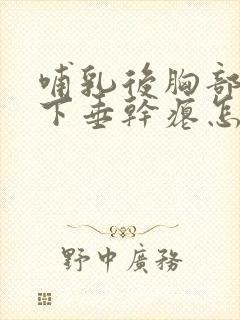 哺乳後胸部
下垂幹癟怎
野中廣務